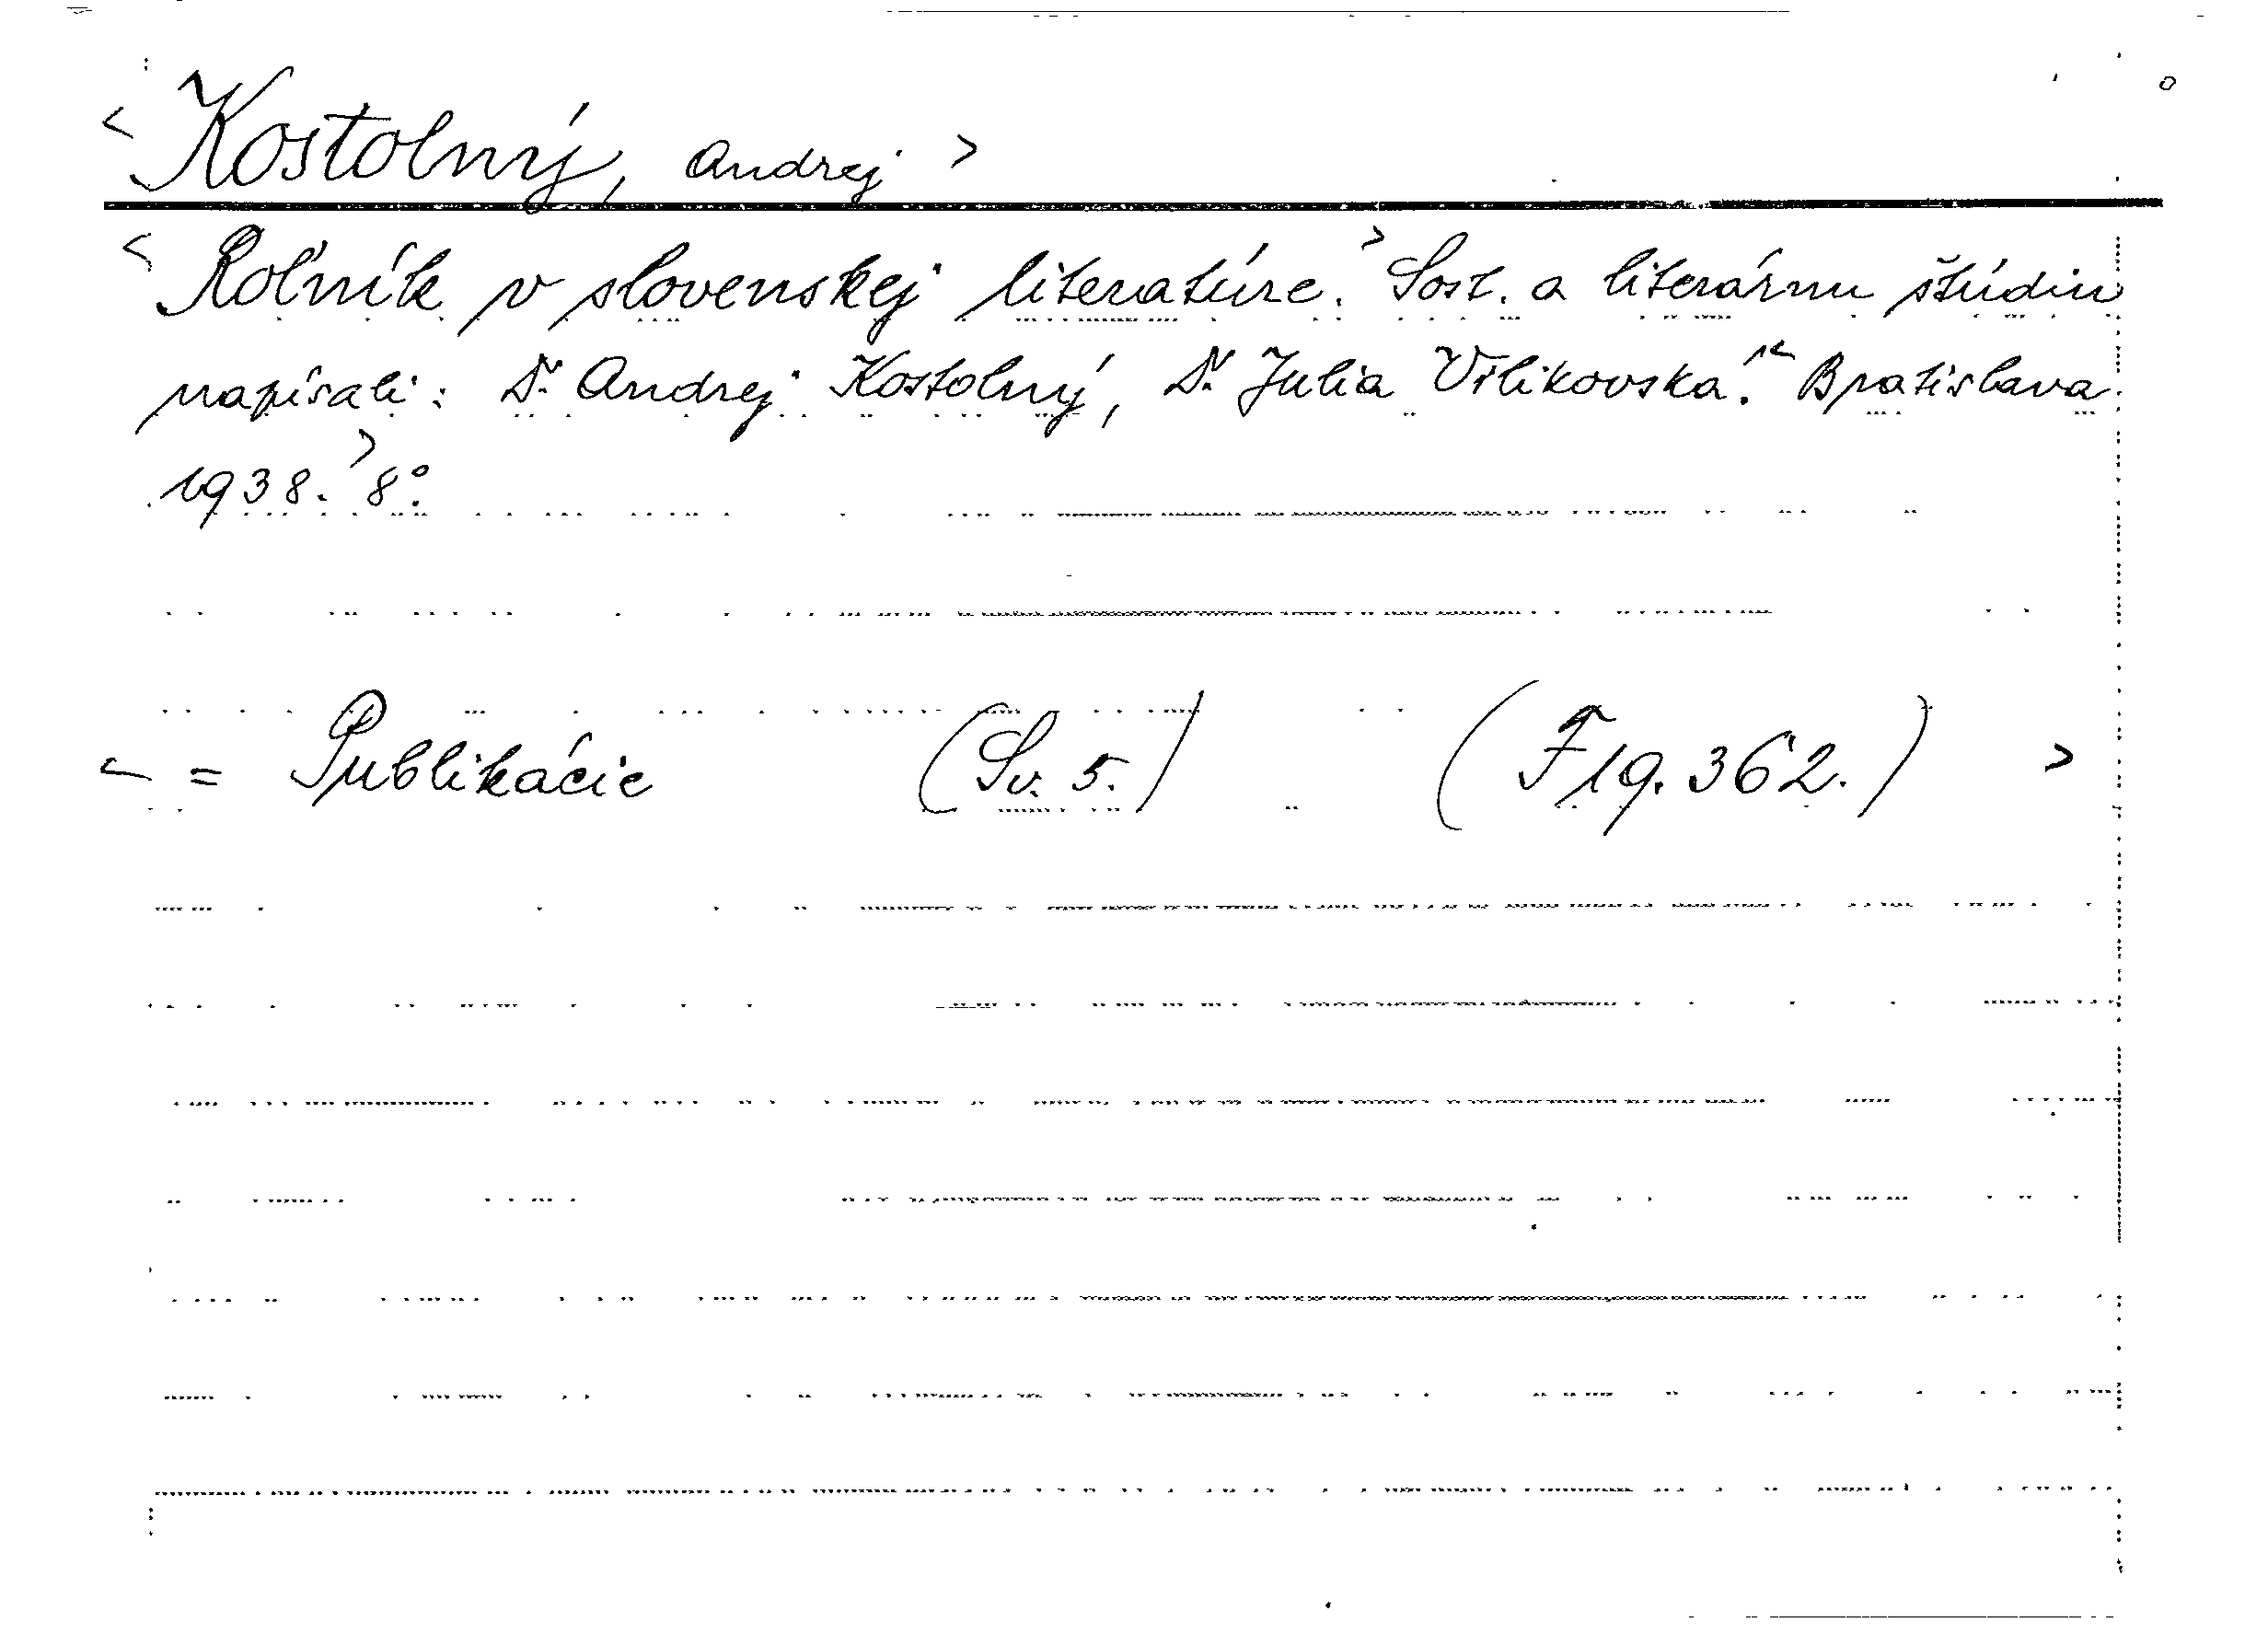 < Kostolný, Andrej >
< Roľník v slovenskej literatúre. > Sost. a literárnu štúdiu
napísali: Dr. Andrej Kostolný, Dr. Julia Vrlikovska. < Bratislava
1938. > 8°.
< = Publikácie (Sv. 5.) (F 19.362.) >